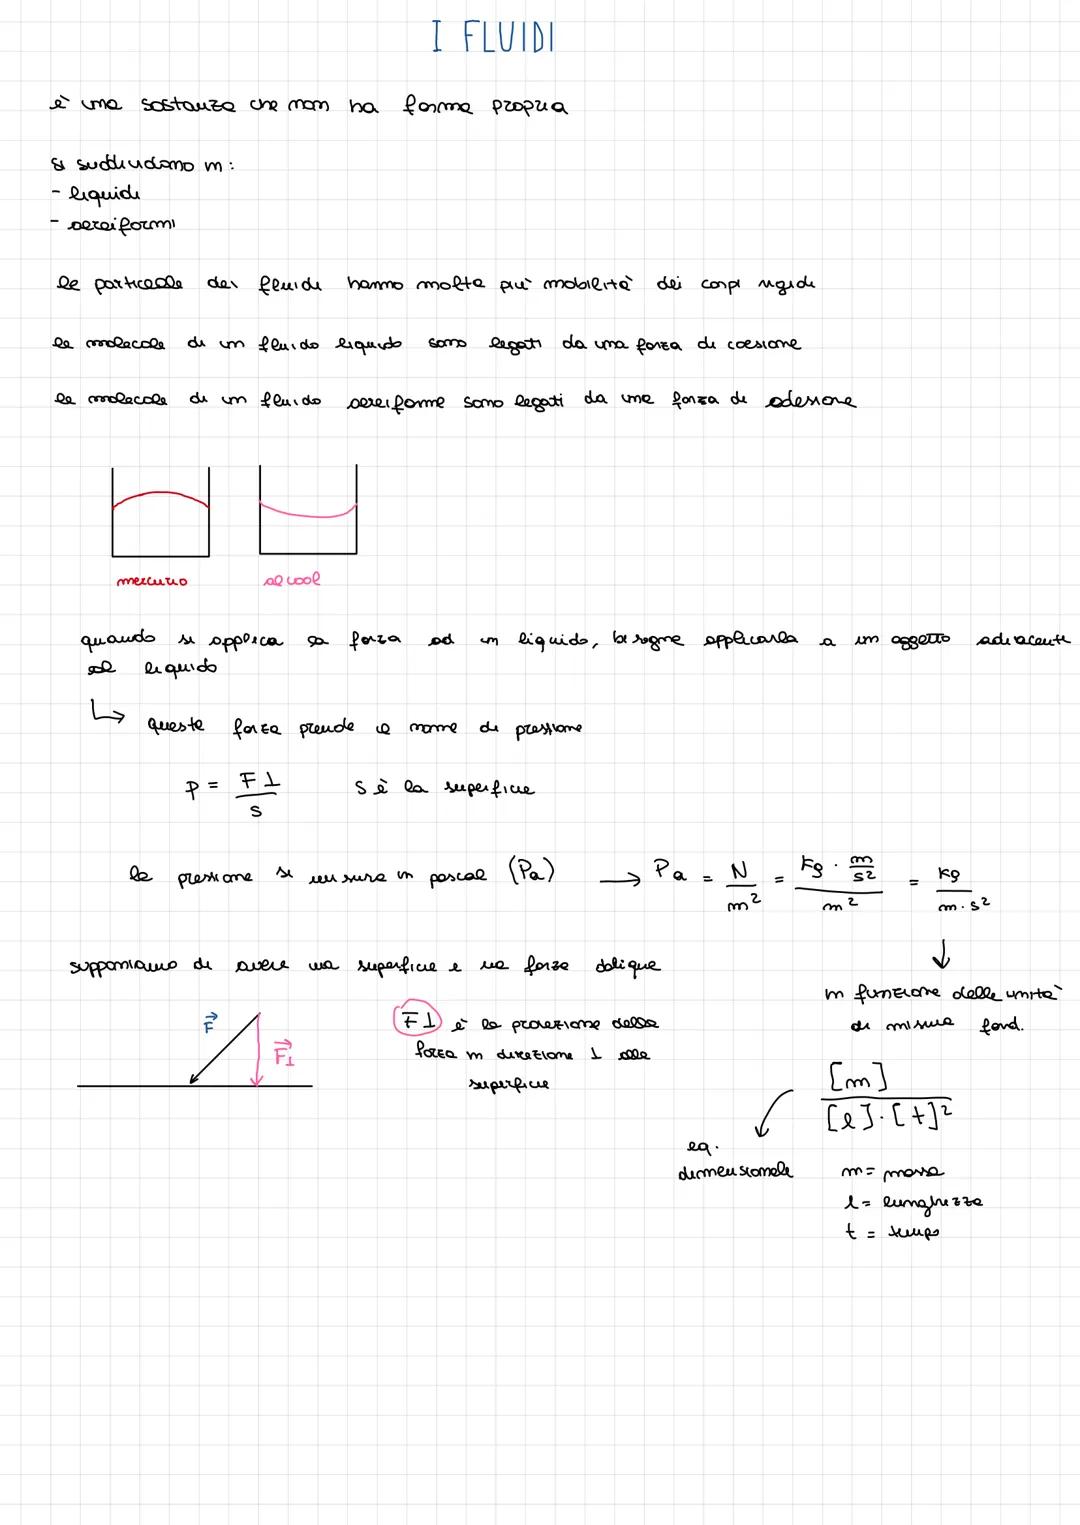 I FLUIDI
è una sostanza che non ha forma propria
si suddividono in:
- liquidi
- aereiformi
le particelle dei fluidi hanno molta più mobilità dei corpi rigidi
le molecole di un fluido liquido sono legati da una forza di coesione
le molecole di un fluido aereiforme sono legati da una forza di adesione
mercurio alcool
quando si applica la forza ad un liquido, bisogna applicarla a un oggetto adiacente
al liquido
↳ questa forza prende il nome di pressione
p = F⊥ / S S è la superficie
la pressione si misura in pascal (Pa) → Pa = N / m² = Kg · m/s² / m² = kg / m · s²
↓
supponiamo di avere una superficie e una forza obliqua
in funzione delle unità
di misura fond.
F⃗ F⃗⊥
F⊥ è la proiezione della
forza in direzione ⊥ alla
superficie
[m] / [l] · [t]²
eq.
dimensionale
m = massa
l = lunghezza
t = tempo